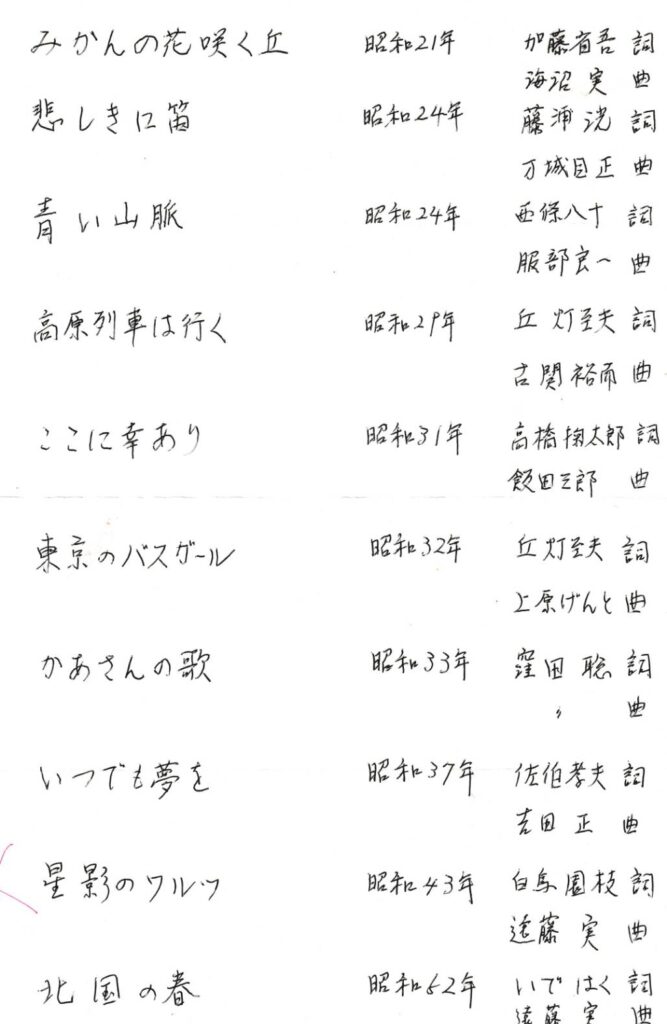 みかんの花咲く丘 昭和21年 加藤省吾 詞
海沼 実 曲
悲しきに笛 昭和24年 藤浦 洸 詞
万城目正 曲
青い山脈 昭和24年 西條八十 詞
服部良一 曲
高原列車は行く 昭和29年 丘 灯至夫 詞
古関裕而 曲
ここに幸あり 昭和31年 高橋掬太郎 詞
飯田三郎 曲
東京のバスガール 昭和32年 丘灯至夫 詞
上原げんと 曲
かあさんの歌 昭和33年 窪田 聡 詞
〃 曲
いつでも夢を 昭和37年 佐伯孝夫 詞
吉田 正 曲
星影のワルツ 昭和43年 白鳥園枝 詞
遠藤 実 曲
北国の春 昭和52年 いではく 詞
遠藤 実 曲